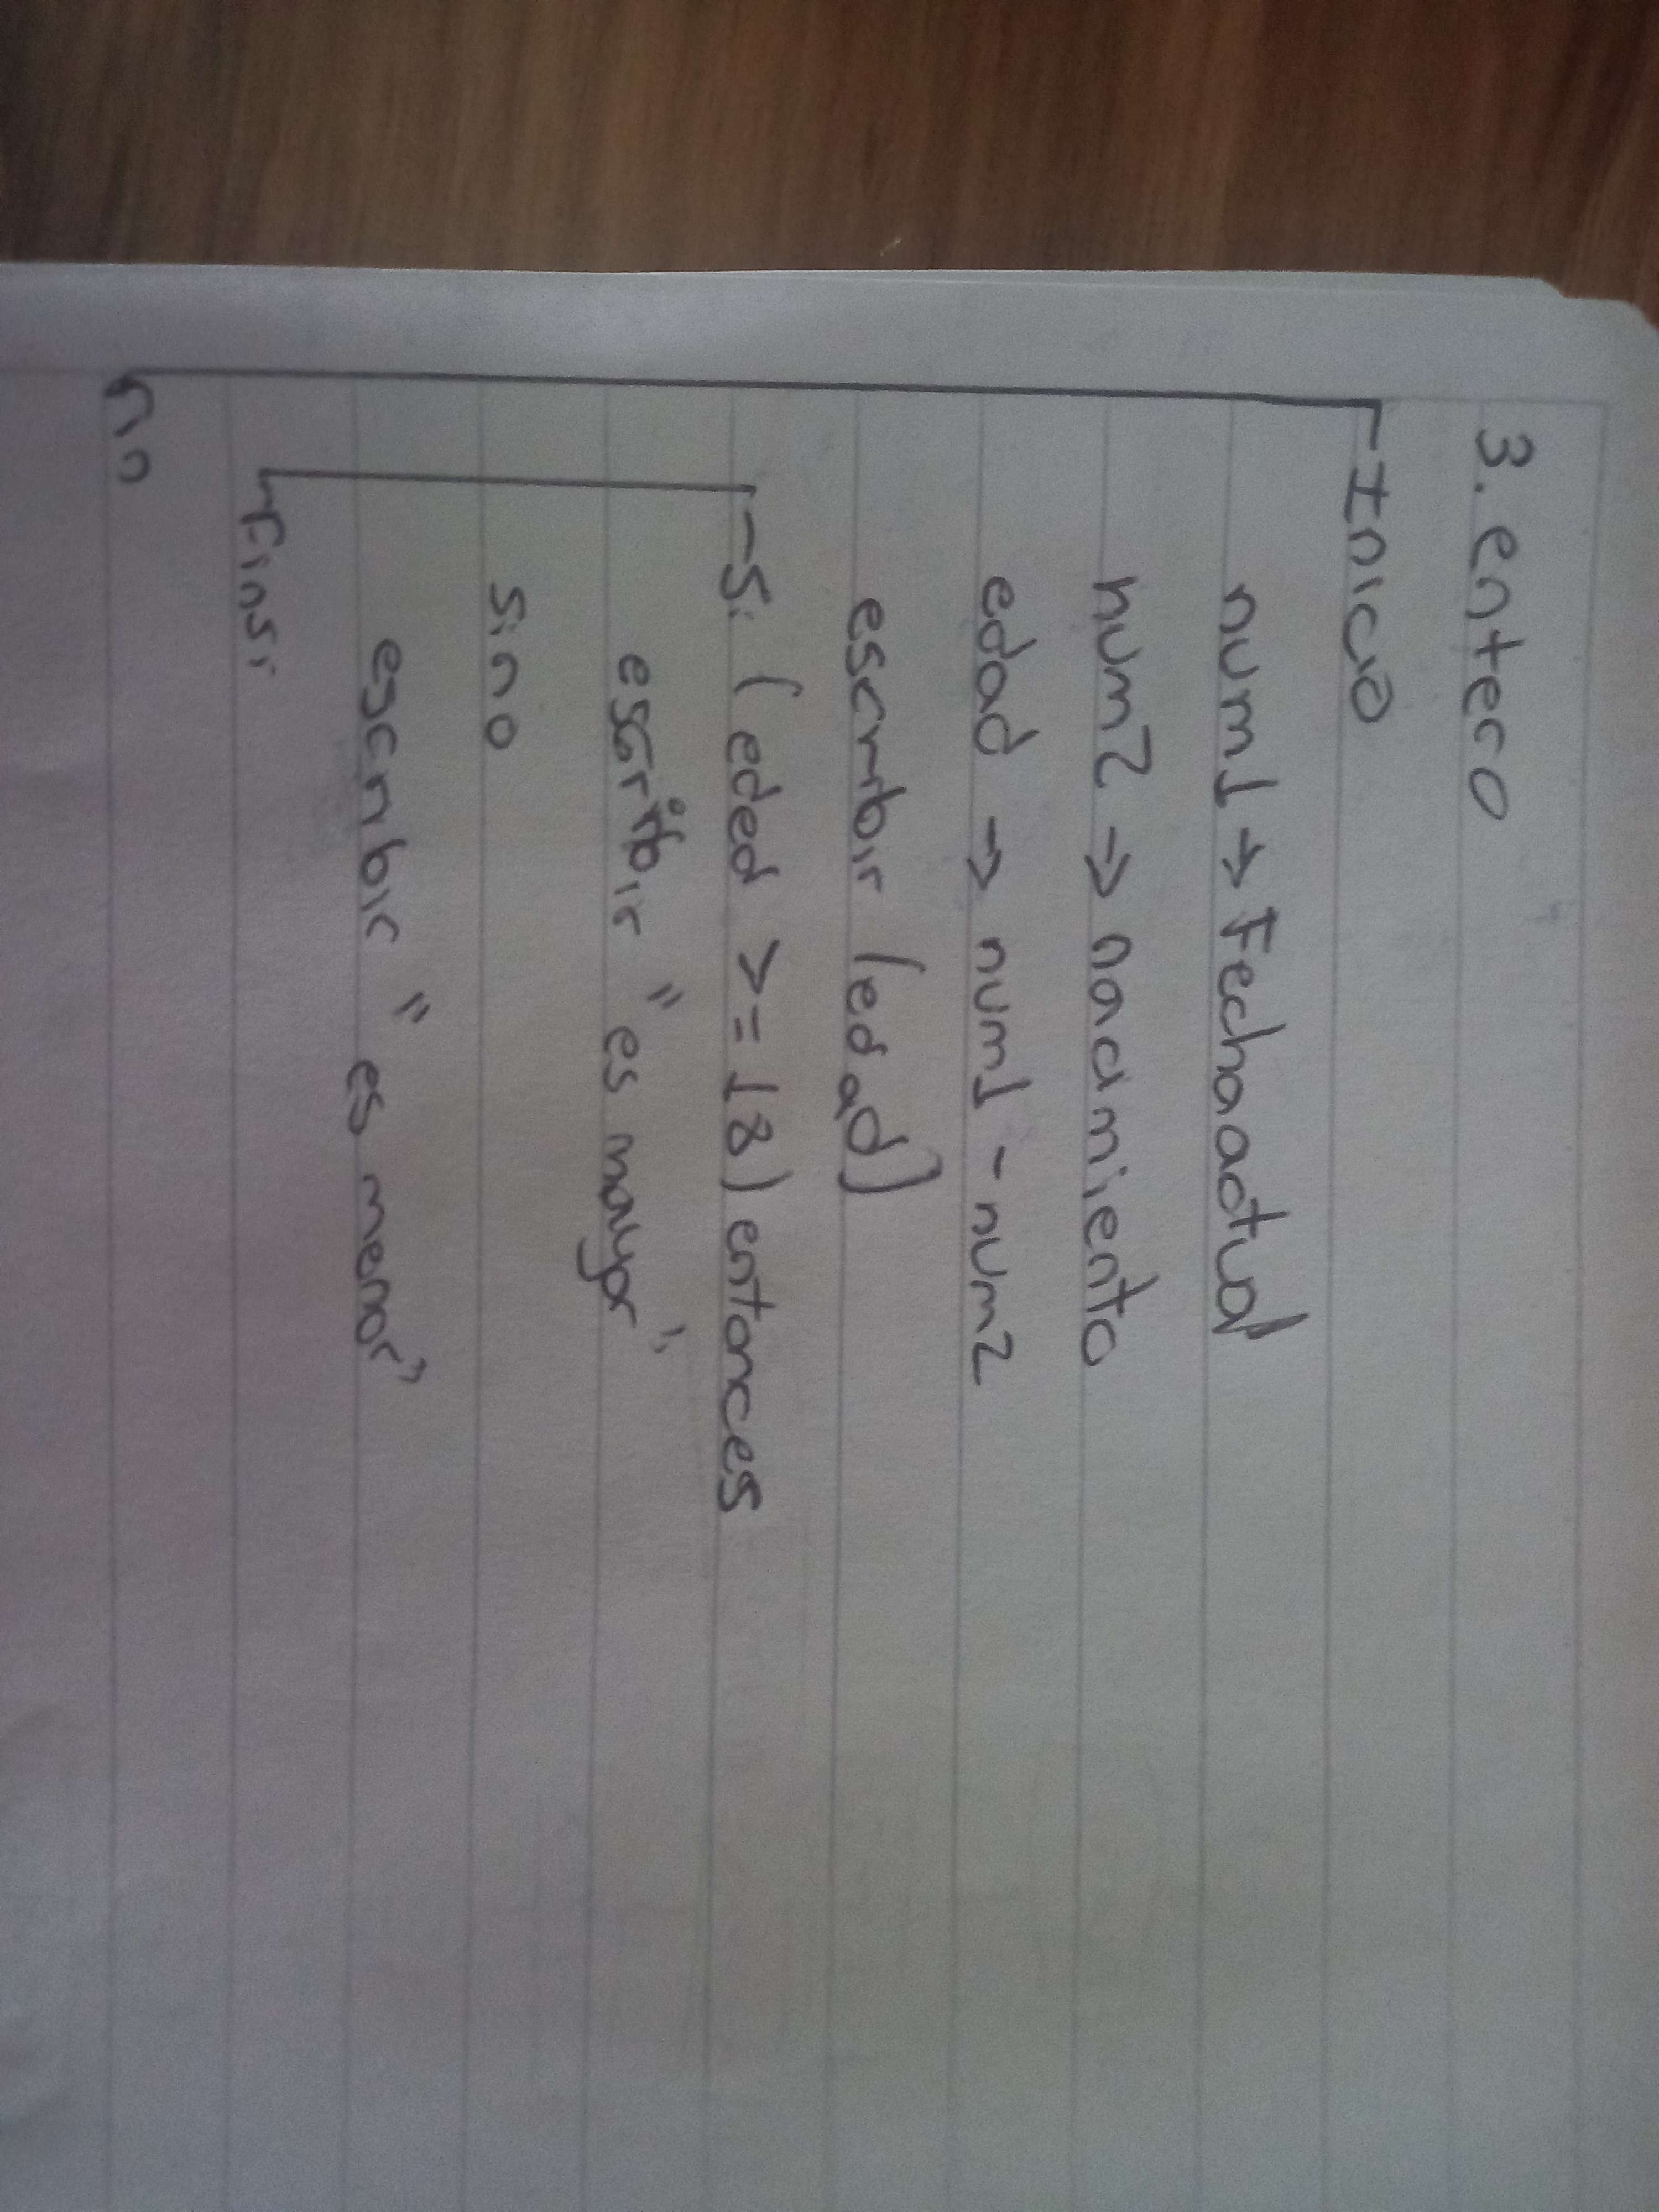 3. entero
Inicio
num1 → Fechaactual
num2 → nacimiento
edad → num1 - num2
escribir (edad)
Si (eded >= 18) entonces
escribir " es mayor ".
Sino
escribir " es menor"
Finsi